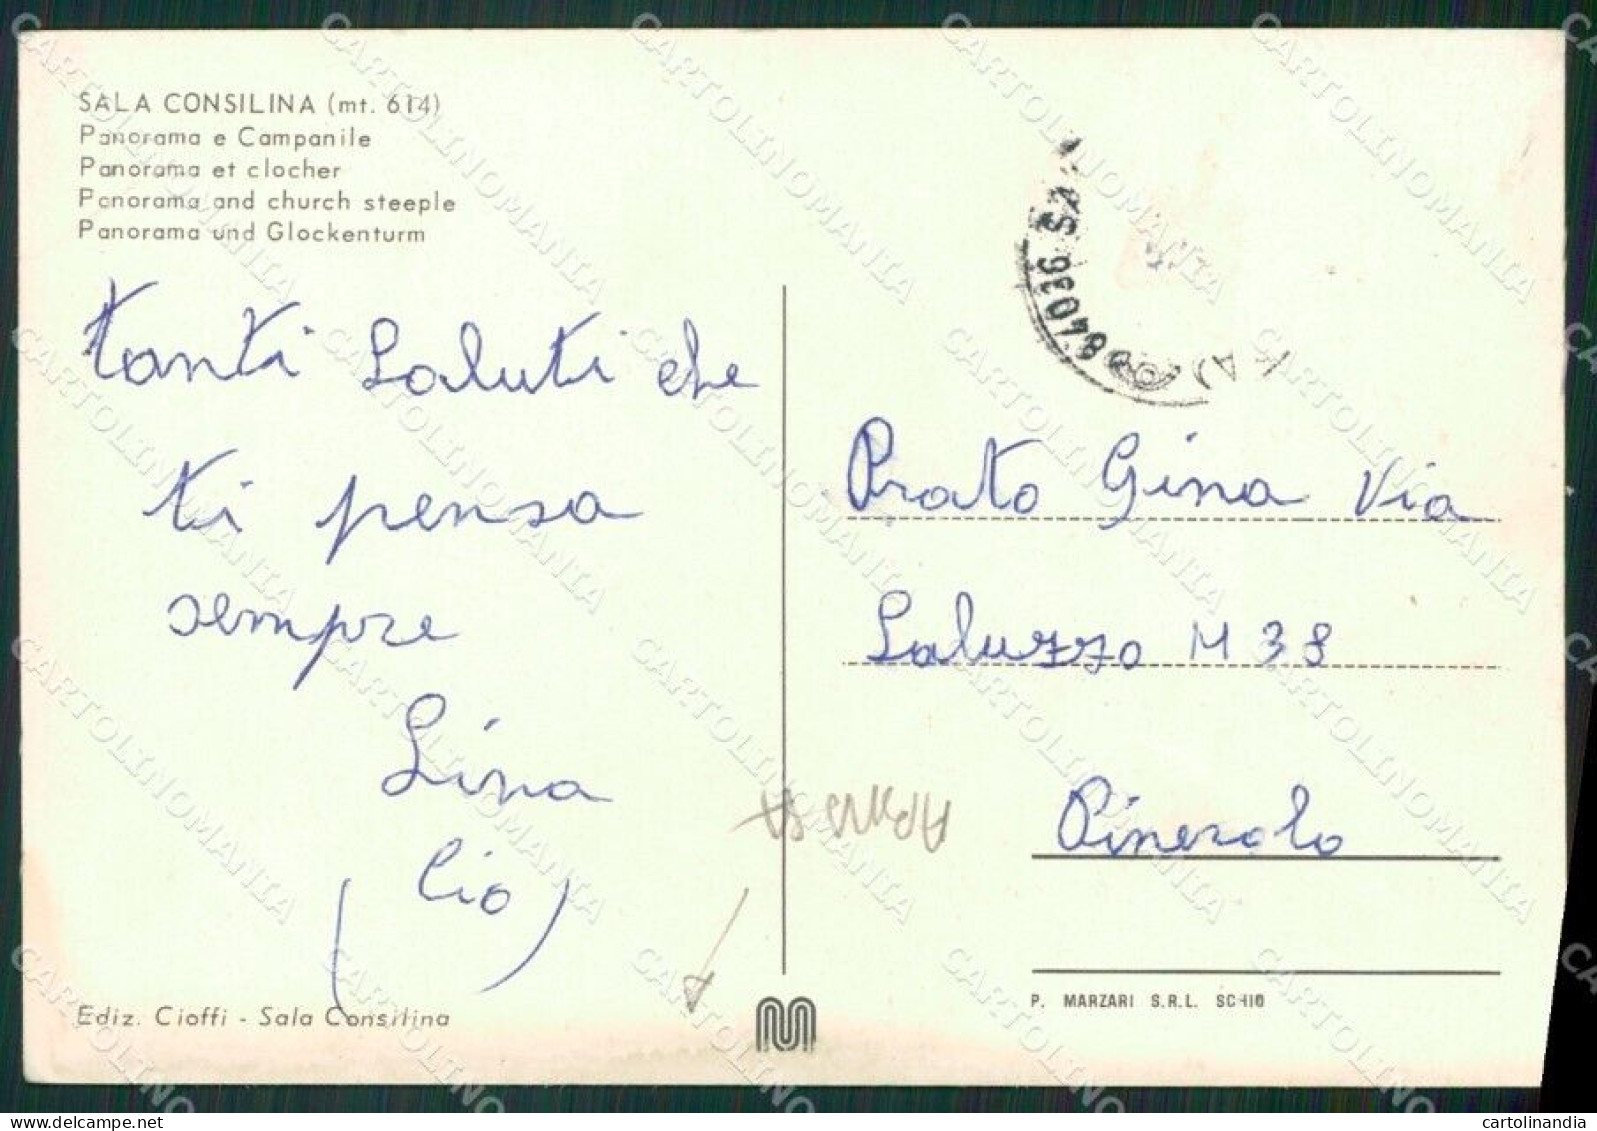 SALA CONSILINA (mt. 614)
Panorama e Campanile
Panorama et clocher
Panorama and church steeple
Panorama und Glockenturm
tanti saluti che
ti pensa
sempre
Lina
(Cio)
Ediz. Cioffi - Sala Consilina
84036 SA
Prato Gina Via
Saluzzo N 38
Pinerolo
P. MARZARI S.R.L. SCHIO
CARTOLINOMANIA
cartolinandia